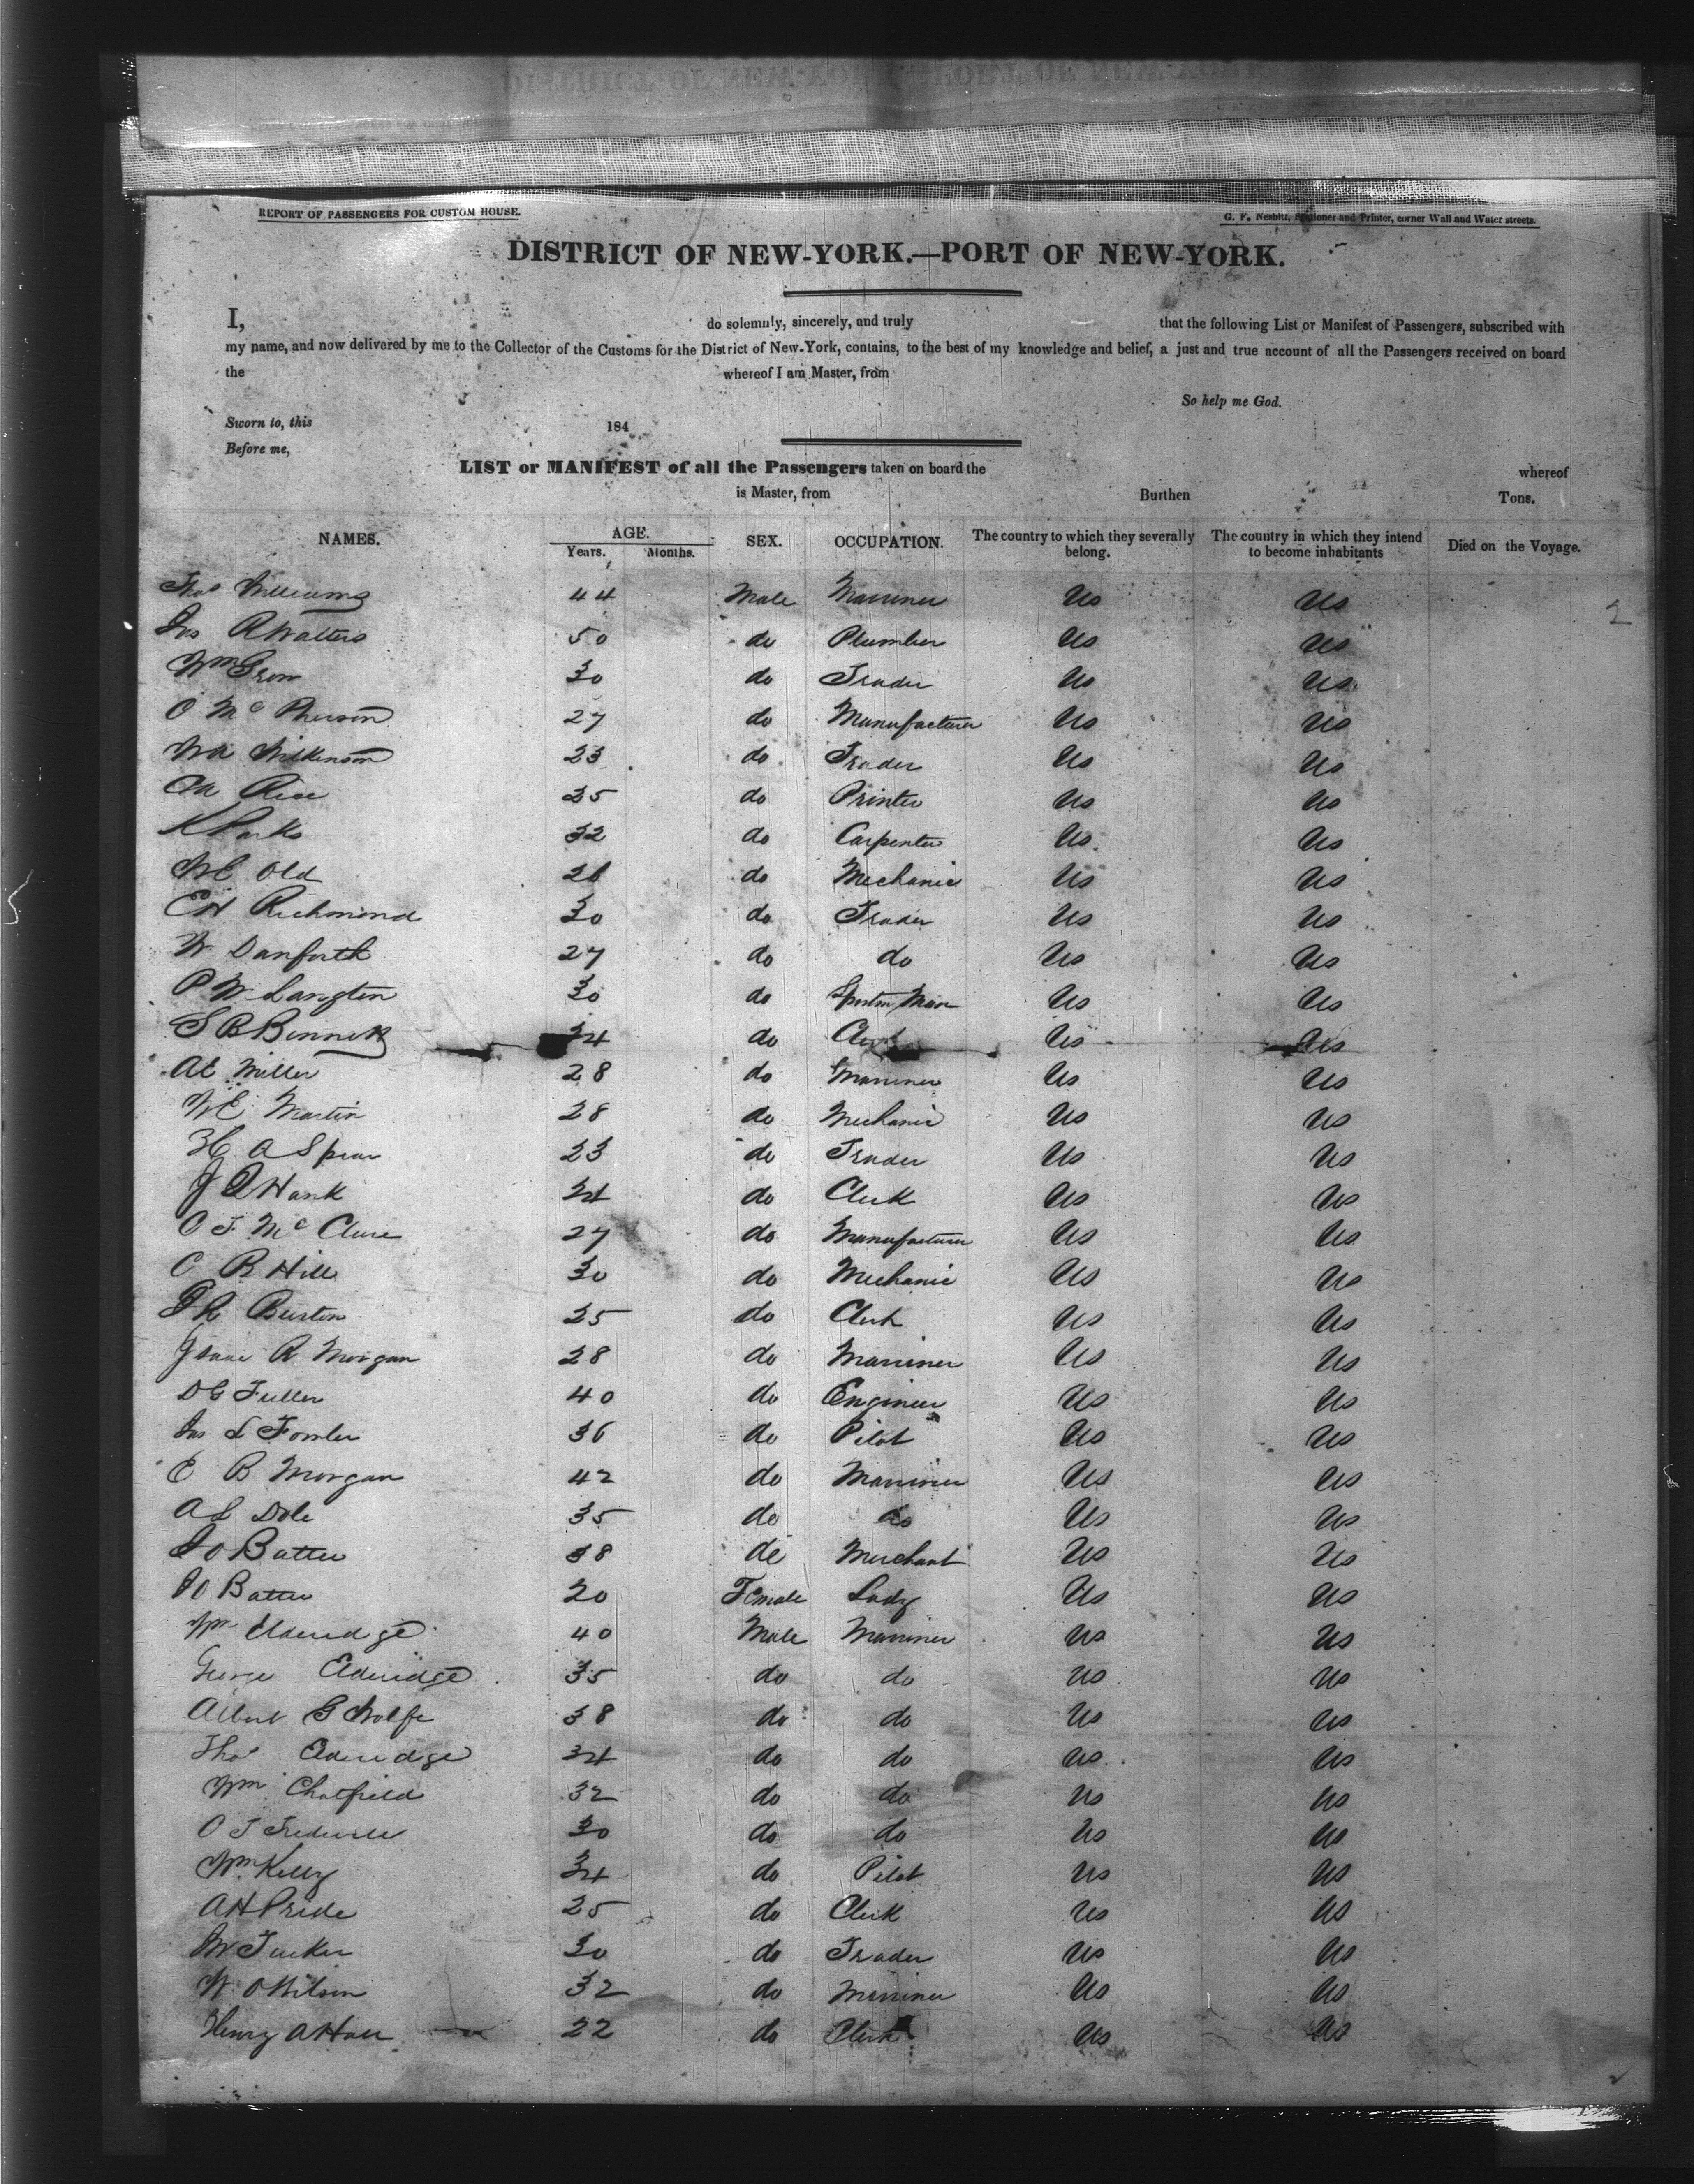 REPORT OF PASSENGERS FOR CUSTOM HOUSE.
G. F. Nesbitt, Stationer and Printer, corner Wall and Water streets.
DISTRICT OF NEW-YORK.—PORT OF NEW-YORK.
I, do solemnly, sincerely, and truly that the following List or Manifest of Passengers, subscribed with
my name, and now delivered by me to the Collector of the Customs for the District of New-York, contains, to the best of my knowledge and belief, a just and true account of all the Passengers received on board
the whereof I am Master, from
So help me God.
Sworn to, this 184
Before me,
LIST or MANIFEST of all the Passengers taken on board the whereof
is Master, from Burthen Tons.
NAMES. AGE. Years. Months. SEX. OCCUPATION. The country to which they severally belong. The country in which they intend to become inhabitants Died on the Voyage.
Thos Williams 44 Male Marriner Us Us 2
Jas R Walters 50 do Plumber Us Us
Wm 30 do Trader Us Us
O Mc Pherson 27 do Manufacturer Us Us
Wm Wilkinson 23 do Trader Us Us
Rice 25 do Printer Us Us
K Parks 32 do Carpenter Us Us
WC Old 26 do Mechanic Us Us
EH Richmond 30 do Trader Us Us
W Danforth 27 do do Us Us
P W Langton 30 do Us Us
S B Bennett 34 do Clerk Us Us
AE Miller 28 do Marriner Us Us
WE Martin 28 do Mechanic Us Us
H A Spear 23 do Trader Us Us
J Q Hank 24 do Clerk Us Us
O J Mc Clure 27 do Manufacturer Us Us
C B Hill 30 do Mechanic Us Us
Burton 25 do Clerk Us Us
Isaac R Morgan 28 do Marriner Us Us
DG Fuller 40 do Engineer Us Us
Jas L Fowler 36 do Pilot Us Us
E B Morgan 42 do Marriner Us Us
A L Dole 35 do do Us Us
Batter 38 do Merchant Us Us
Batter 20 Female Lady Us Us
Wm Elderidge 40 Male Marriner Us Us
George Elderidge 35 do do Us Us
Albert G Wolfe 38 do do Us Us
Thos Elderidge 34 do do Us Us
Wm Chatfield 32 do do Us Us
O J 30 do do Us Us
Wm Kelly 34 do Pilot Us Us
AH Pride 25 do Clerk Us Us
W Tucker 30 do Trader Us Us
W O Wilson 32 do Marriner Us Us
Henry A Hall 22 do Clerk Us Us